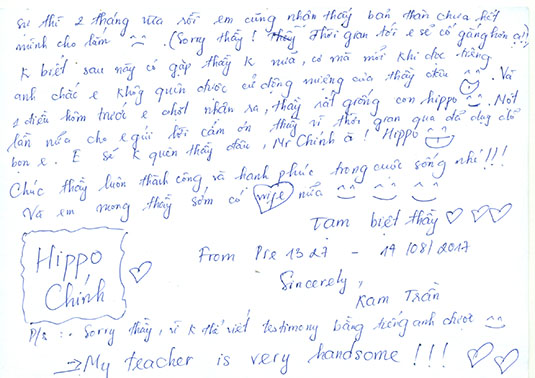 sự thì 2 tháng vừa rồi em cũng nhận thấy bản thân chưa hết
mình cho lắm. (Sorry thầy! Thầy Thời gian tới e sẽ cố gắng hơn ạ!)
K biết sau này có gặp thầy k nữa, cơ mà mỗi khi đọc tiếng
anh chắc e không quên được cử động miệng của thầy đâu. Và
1 điều hôm trước e chợt nhận ra, thầy rất giống con hippo. Một
lần nữa cho e gửi lời cảm ơn thầy vì thời gian qua đã dạy dỗ
bọn e. E sẽ k quên thầy đâu, Mr Chính à! Hippo
Chúc thầy luôn thành công và hạnh phúc trong cuộc sống nhé!!!
Và em mong thầy sớm có wife nữa
Tạm biệt thầy
From Pre 1327 - 19/08/2017
Hippo
Chính
Sincerely,
Trần
P/s :- Sorry thầy, vì k thể viết testimony bằng tiếng anh được
→ My teacher is very handsome!!!